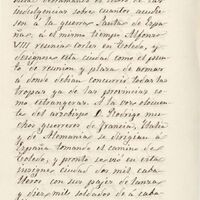 indulgencias sobre cuantos acudie-
sen á la guerra Santa de Espa-
ña, á el mismo tiempo Alfonso
VIII reunia cortes en Toledo, y
designaba esta ciudad como el pun-
to de reunion y plaza de armas
á donde debian concurrir todas las
tropas ya de las provincias co-
mo estrangeras. A la voz elocuen-
te del arzobispo D. Rodrigo mu-
chos guerreros de Francia, Italia
y de Alemania se dirigian á
España tomando el camino de
Toledo, y pronto se vió en esta
insigne ciudad dos mil caba-
lleros con sus pajes de lanza
y diez mil soldados de á caba-